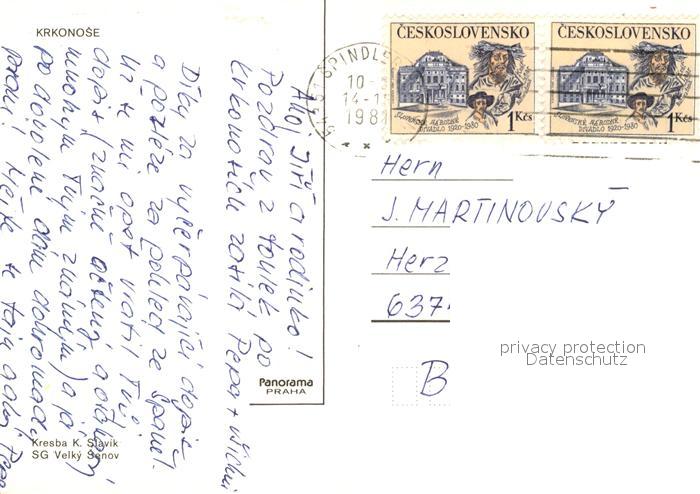 KRKONOŠE
Ahoj Jiří a rodinko!
Pozdrav z toulek po
Krkonoších zasílá Pepa + všichni
Díky za vyčerpávající dopis
a posléze za pohled ze Španěl.
Už se mi opět vrátil Tvůj
dopis (značně
mnohým Tvým známým) a já
po dovolené dám dohromady
Kresba K. Slavík
SG Velký Šenov
Panorama
PRAHA
ČESKOSLOVENSKO
SLOVENSKÉ NÁRODNÉ
DIVADLO 1920-1980
1 Kčs
ČESKOSLOVENSKO
SLOVENSKÉ NÁRODNÉ
DIVADLO 1920-1980
1 Kčs
ŠPINDLER
10-
14-1
1981
Herrn
J. MARTINOVSKÝ
Herz
637
B
privacy protection
Datenschutz